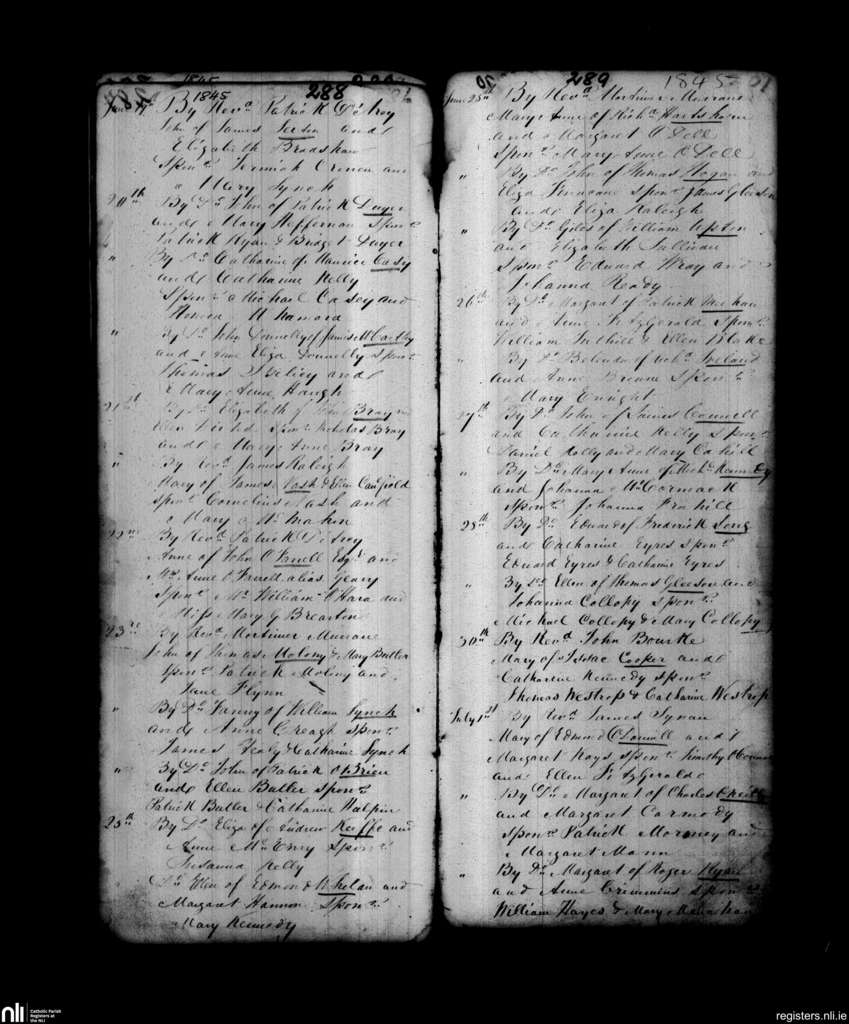 1845
288
1845
By Revd Patrick
John of James and
Elizabeth Bradshaw
Sponrs and
Mary Lynch
20th By Do John of Patrick Dwyer
and Mary Heffernan Sponrs
Patrick Ryan & Bridget Dwyer
" By Do Catharine of Maurice Casy
and Catharine Kelly
Sponrs Michael Casey and
Honora McNamara
" By Do John Donnelly of James McCarthy
and Anne Eliza Donnelly Sponrs
Thomas and
Mary Anne Haugh
21st By Do Elizabeth of Bray
Ellen Sponrs Nicholas Bray
and Mary Anne Bray
" By Revd James Raleigh
Mary of James Nash & Ellen Canfield
Sponrs Cornelius Nash and
Mary McMahon
22nd By Revd Patrick
Anne of John O'Farrell Esqr and
Mrs Anne O'Farrell alias Geary
Sponrs Mr William O'Hara and
Miss Mary G Brearton
23rd By Revd Mortimer Murnane
John of Thomas Molony & Mary Butler
Sponrs Patrick Molony and
Jane Flynn
" By Do Fanny of William Lynch
and Anne Creagh Sponrs
James & Catharine Lynch
" By Do John of Patrick O'Brien
and Ellen Butler Sponrs
Patrick Butler & Catharine Halpin
25th By Do Eliza of Andrew Keeffe and
Anne McEnry Sponr
Susanna Kelly
Do Ellen of Edmond Whelan and
Margaret Hannon Sponr
Mary Kennedy
289 1845
June 25th By Revd Mortimer Murnane
Mary Anne of Michl Hartshorn
and Margaret O'Dell
Sponr Mary Anne O'Dell
" By Do John of Thomas Hogan and
Eliza Finucane Sponrs James Gleeson
and Eliza Raleigh
" By Do Giles of William Upton
and Elizabeth Sullivan
Sponrs Edward Wray and
Johanna Ready
26th By Do Margaret of Patrick Meehan
and Anne FitzGerald Sponrs
William Tuthill & Ellen Blake
" By Do Belinda of Ireland
and Anne Sponr
Mary Enright
27th By Do John of James Connell
and Catharine Kelly Sponrs
Daniel Kelly and Mary Cahill
" By Do Mary Anne of Michl Kennedy
and Johanna McCormack
Sponr Johanna Frahill
28th By Do Edward of Frederick Long
and Catharine Eyres Sponrs
Edward Eyres & Catharine Eyres
" By Do Ellen of Thomas Gleeson and
Johanna Collopy Sponrs
Michael Collopy & Mary Collopy
30th By Revd John Bourke
Mary of Isaac Cooper and
Catharine Kennedy Sponrs
Thomas Westrop & Catharine Westrop
July 1st By Revd James Synan
Mary of Edmond O'Donnell and
Margaret Hays Sponrs Timothy O'Connor
and Ellen FitzGerald
" By Do Margaret of Charles O'Keiffe
and Margaret Carmody
Sponrs Patrick Moroney and
Margaret Mann
" By Do Margaret of Roger Ryan
and Anne Crimmins Sponrs
William Hayes & Mary
nli
Catholic Parish
Registers at
the NLI
registers.nli.ie